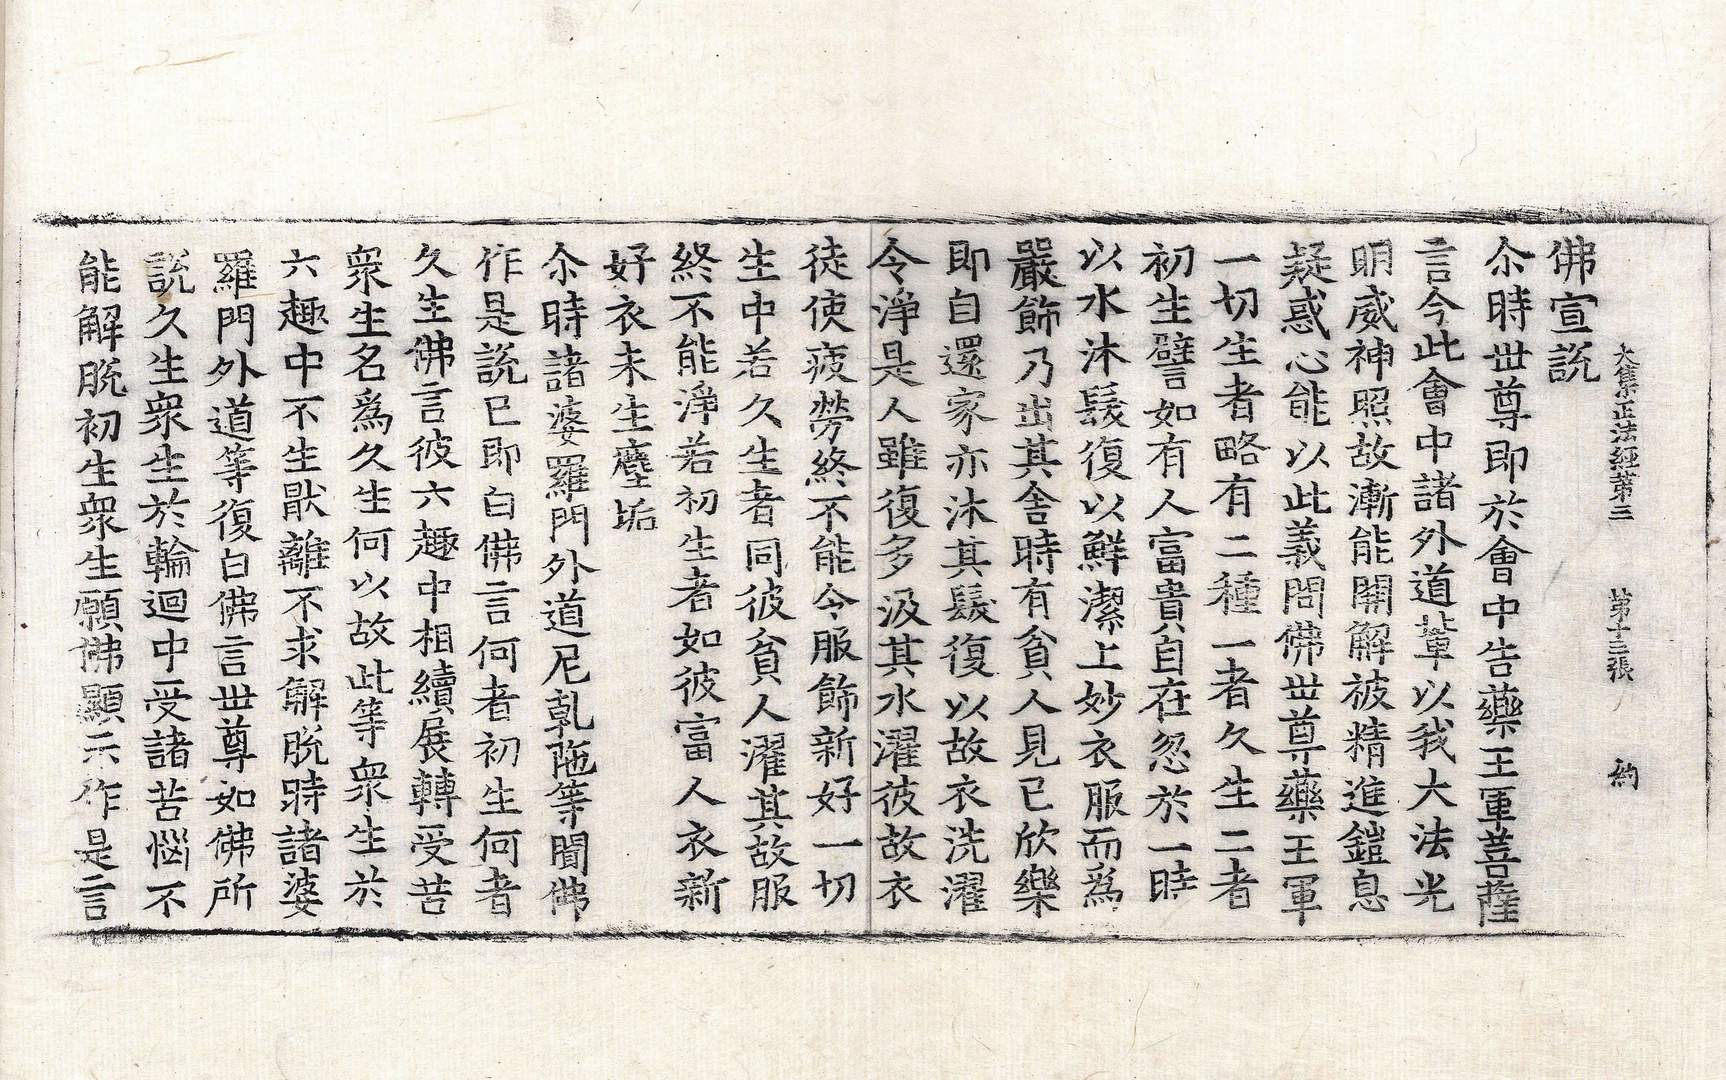 大集正法經第三 第十三張 約
佛宣說
尒時世尊即於會中告藥王軍菩薩
言今此會中諸外道輩以我大法光
明威神照故漸能開解被精進鎧息
疑惑心能以此義問佛世尊藥王軍
一切生者略有二種一者久生二者
初生譬如有人富貴自在忽於一時
以水沐髮復以鮮潔上妙衣服而為
嚴飾乃出其舍時有貧人見已欣樂
即自還家亦沐其髮復以故衣洗濯
令淨是人雖復多汲其水濯彼故衣
徒使疲勞終不能令服飾新好一切
生中若久生者同彼貧人濯其故服
終不能淨若初生者如彼富人衣新
好衣未生塵垢
尒時諸婆羅門外道尼乹陁等聞佛
作是說已即白佛言何者初生何者
久生佛言彼六趣中相續展轉受苦
衆生名爲久生何以故此等衆生於
六趣中不生猒離不求解脫時諸婆
羅門外道等復白佛言世尊如佛所
說久生衆生於輪迴中受諸苦惱不
能解脫初生衆生願佛顯示作是言